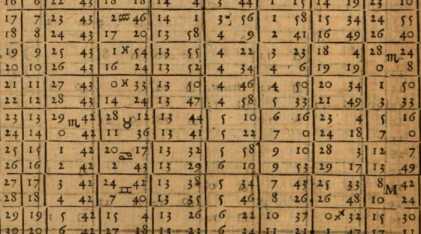 17 23 43 2 ♒ 46 14 2 3 56 1 58 15 34 24 55
18 8 24 43 17 20 13 58 4 9 2 41 16 49
19 9 25 43 1 54 13 55 4 22 3 23 18 4 28 ♏ 24
20 10 26 43 16 24 13 52 4 34 4 6 19 19 0 8
21 11 27 43 0 ♓ 33 13 50 4 46 4 50 20 34 1 50
22 12 28 43 14 24 13 47 4 58 5 33 21 49 3 33
23 13 29 ♏ 42 28 ♉ 12 13 44 5 10 6 16 23 4 5 16
24 14 0 42 11 36 13 41 5 22 7 0 24 18 7 0
25 15 1 42 20 ♋ 17 13 32 5 58 9 10 28 3 12 7
26 16 2 42 2 43 13 29 6 10 9 53 29 17 13 49
27 17 3 42 24 ♊ 42 13 38 5 34 7 43 25 33 8 M 42
28 18 4 42 7 40 13 35 5 46 8 26 26 48 10 24
29 19 5 42 15 4 13 26 6 22 10 37 0 ♐ 32 15 30